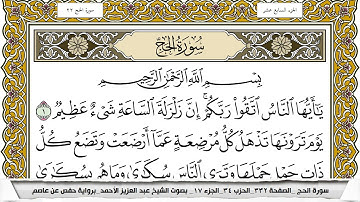 سورة الحج ٢٢
الجزء السابع عشر
سُورَةُ الحَجِّ
بِسْمِ اللَّهِ الرَّحْمَٰنِ الرَّحِيمِ
يَٰٓأَيُّهَا النَّاسُ اتَّقُوا۟ رَبَّكُمْ ۚ إِنَّ زَلْزَلَةَ السَّاعَةِ شَىْءٌ عَظِيمٌ ١
يَوْمَ تَرَوْنَهَا تَذْهَلُ كُلُّ مُرْضِعَةٍ عَمَّآ أَرْضَعَتْ وَتَضَعُ كُلُّ
ذَاتِ حَمْلٍ حَمْلَهَا وَتَرَى النَّاسَ سُكَٰرَىٰ وَمَا هُم بِسُكَٰرَىٰ
سورة الحج _ الصفحة ٣٣٢_ الحزب ٣٤_ الجزء ١٧ _ بصوت الشيخ عبد العزيز الأحمد_ برواية حفص عن عاصم